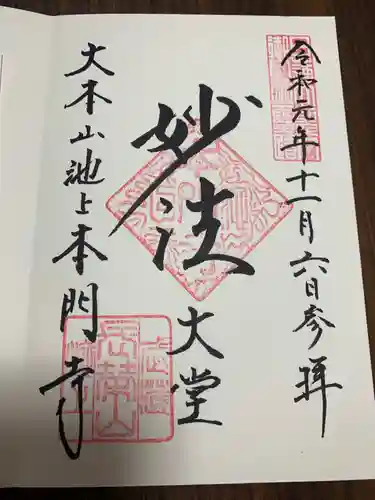 令和元年十一月六日参拝
妙法
大堂
大本山池上本門寺